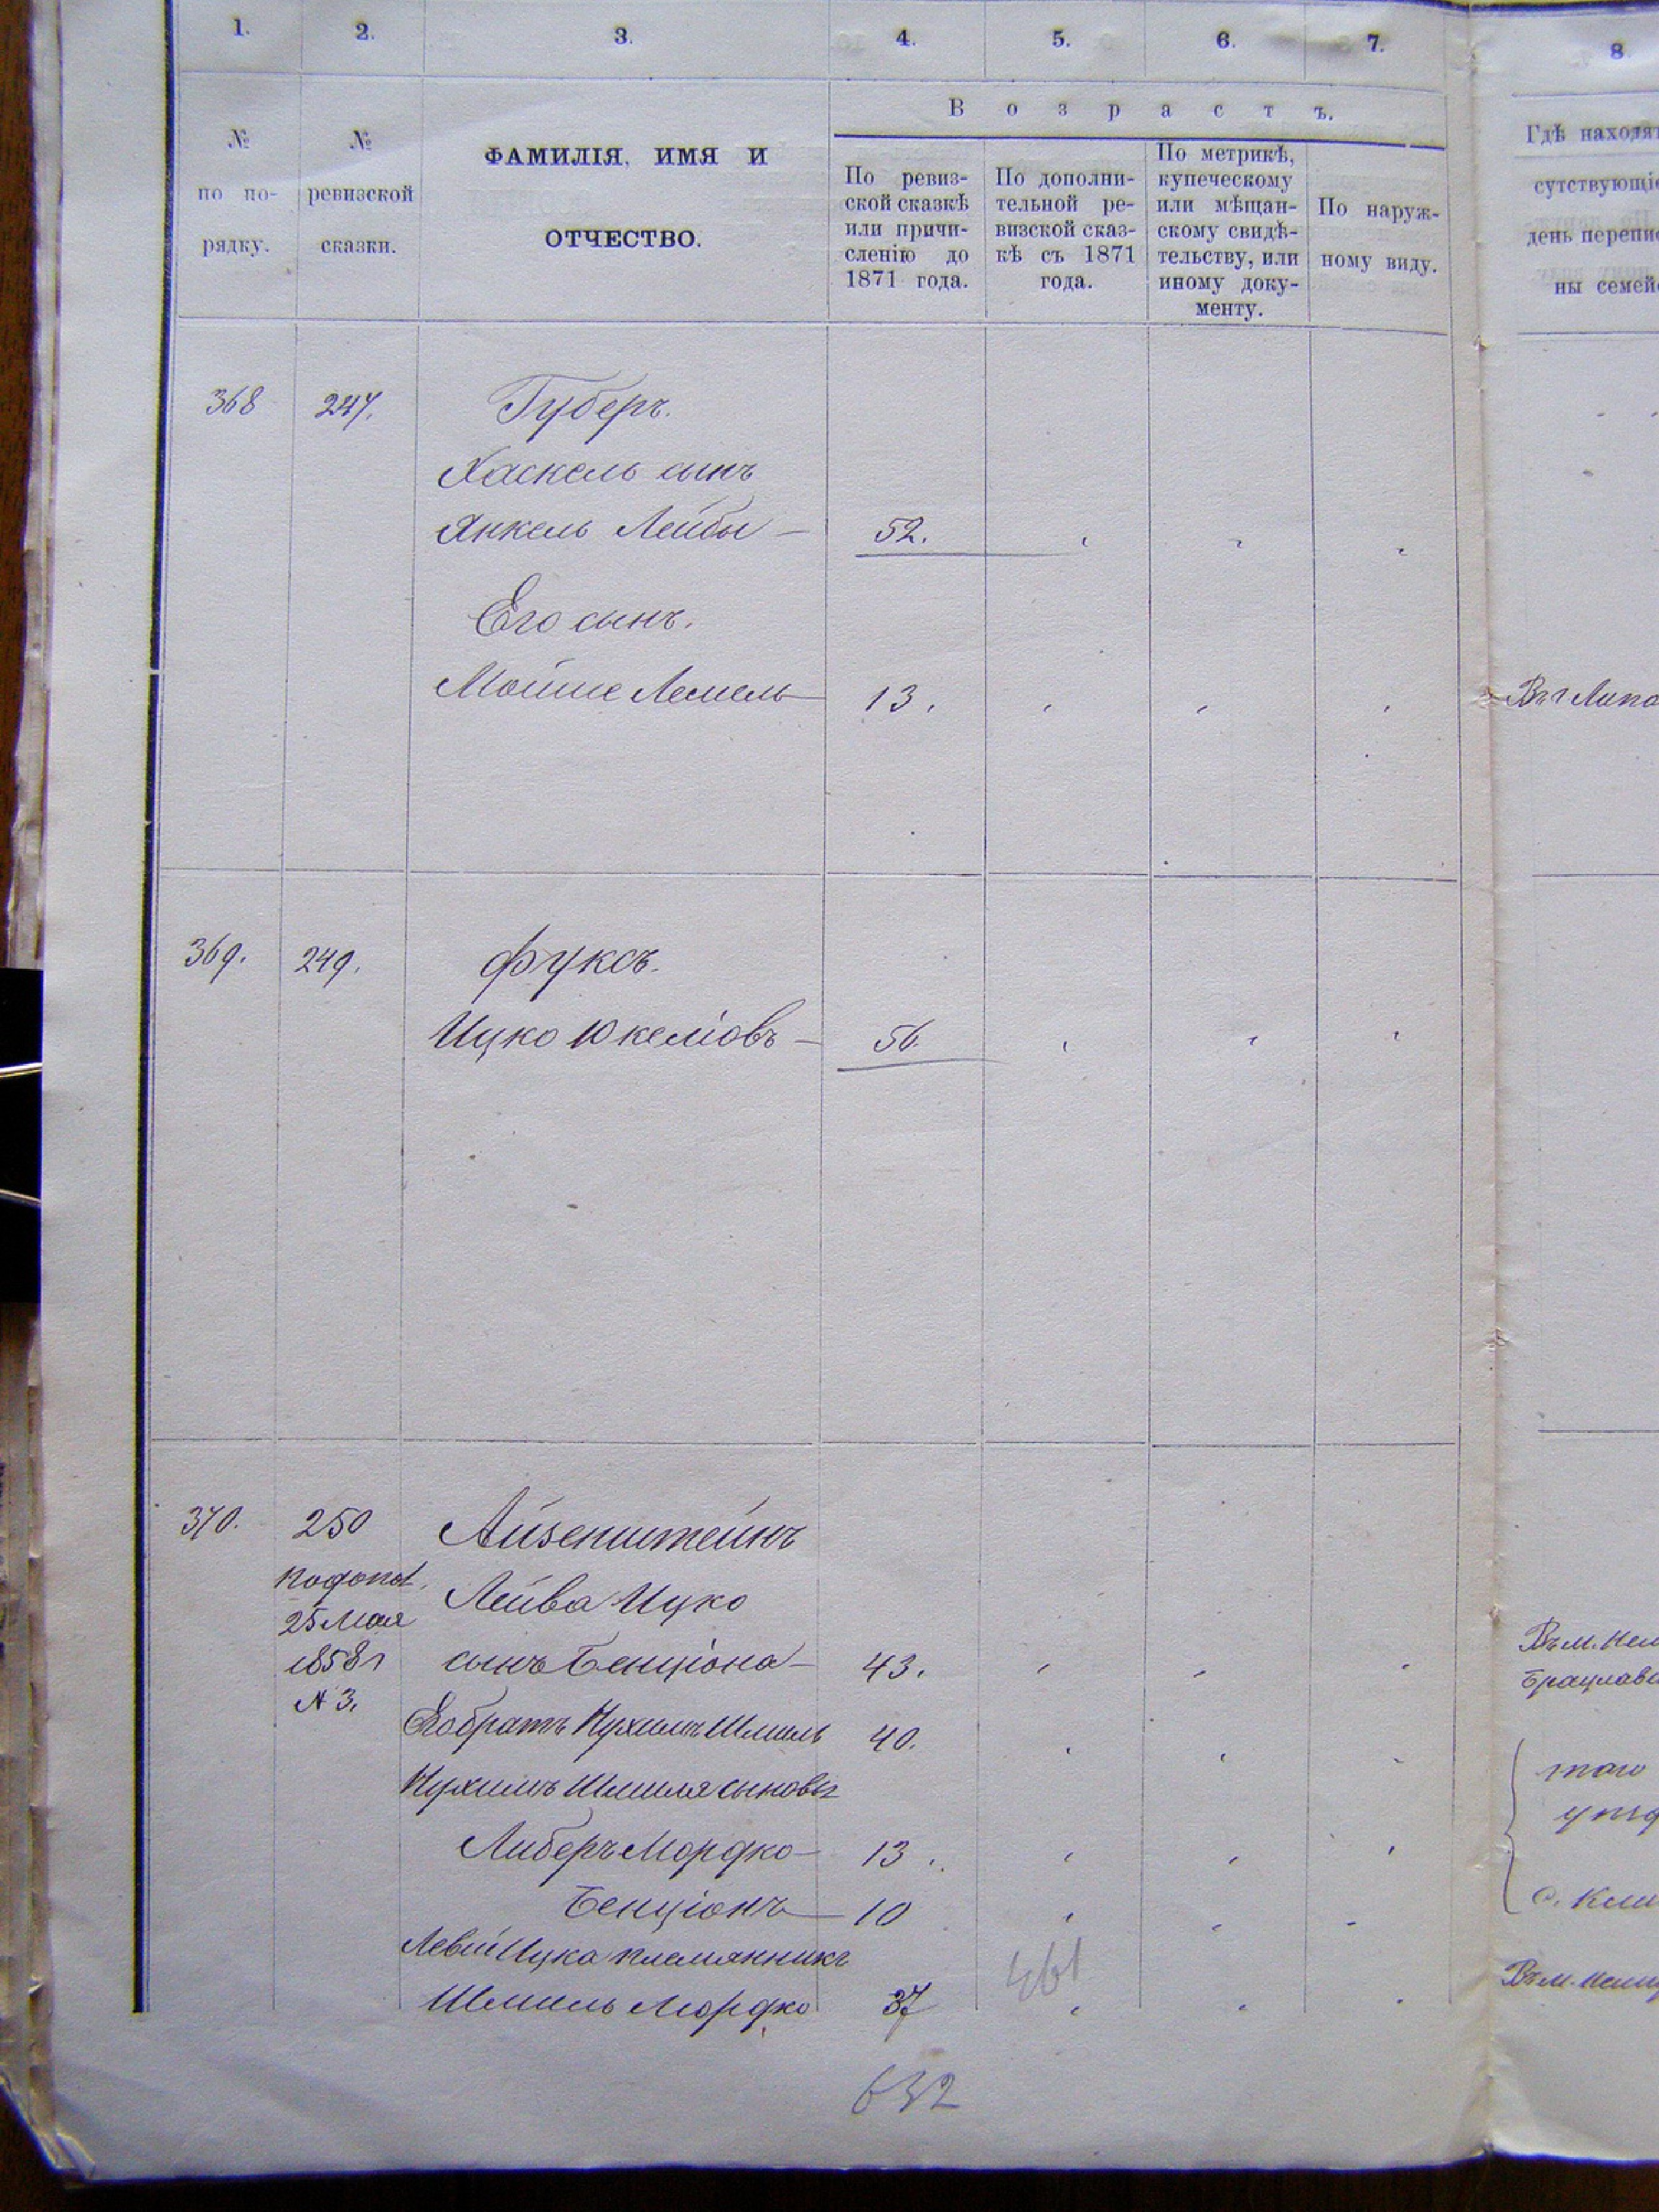 1. 2. 3. 4. 5. 6. 7. 8
№ по по-рядку.
№ ревизской сказки.
ФАМИЛІЯ, ИМЯ И
ОТЧЕСТВО.
Возрастъ.
По ревиз-
ской сказкѣ
или причи-
сленію до
1871 года.
По дополни-
тельной ре-
визской сказ-
кѣ съ 1871
года.
По метрикѣ,
купеческому
или мѣщан-
скому свидѣ-
тельству, или
иному доку-
менту.
По наруж-
ному виду.
Гдѣ находят
сутствующіе
день перепис
ны семей
368 247. Губеръ.
Хаскель сынъ
Янкель Лейбы — 52.
Его сынъ.
Мойше Лемель — 13.
369. 249. Фуксъ.
Ицко Юкеліовъ — 56.
370. 250 Айзенштейнъ
Лейва Ицко
25 Мая
1858 г сынъ Бенціона — 43.
№ 3.
Его братъ Нухимъ Шмиль 40.
Нухимъ Шмиля сыновья
Либеръ Мордко — 13.
Бенціонъ — 10
Левы Ицка племянникъ
Шмиль Мордко 37
того
461
632